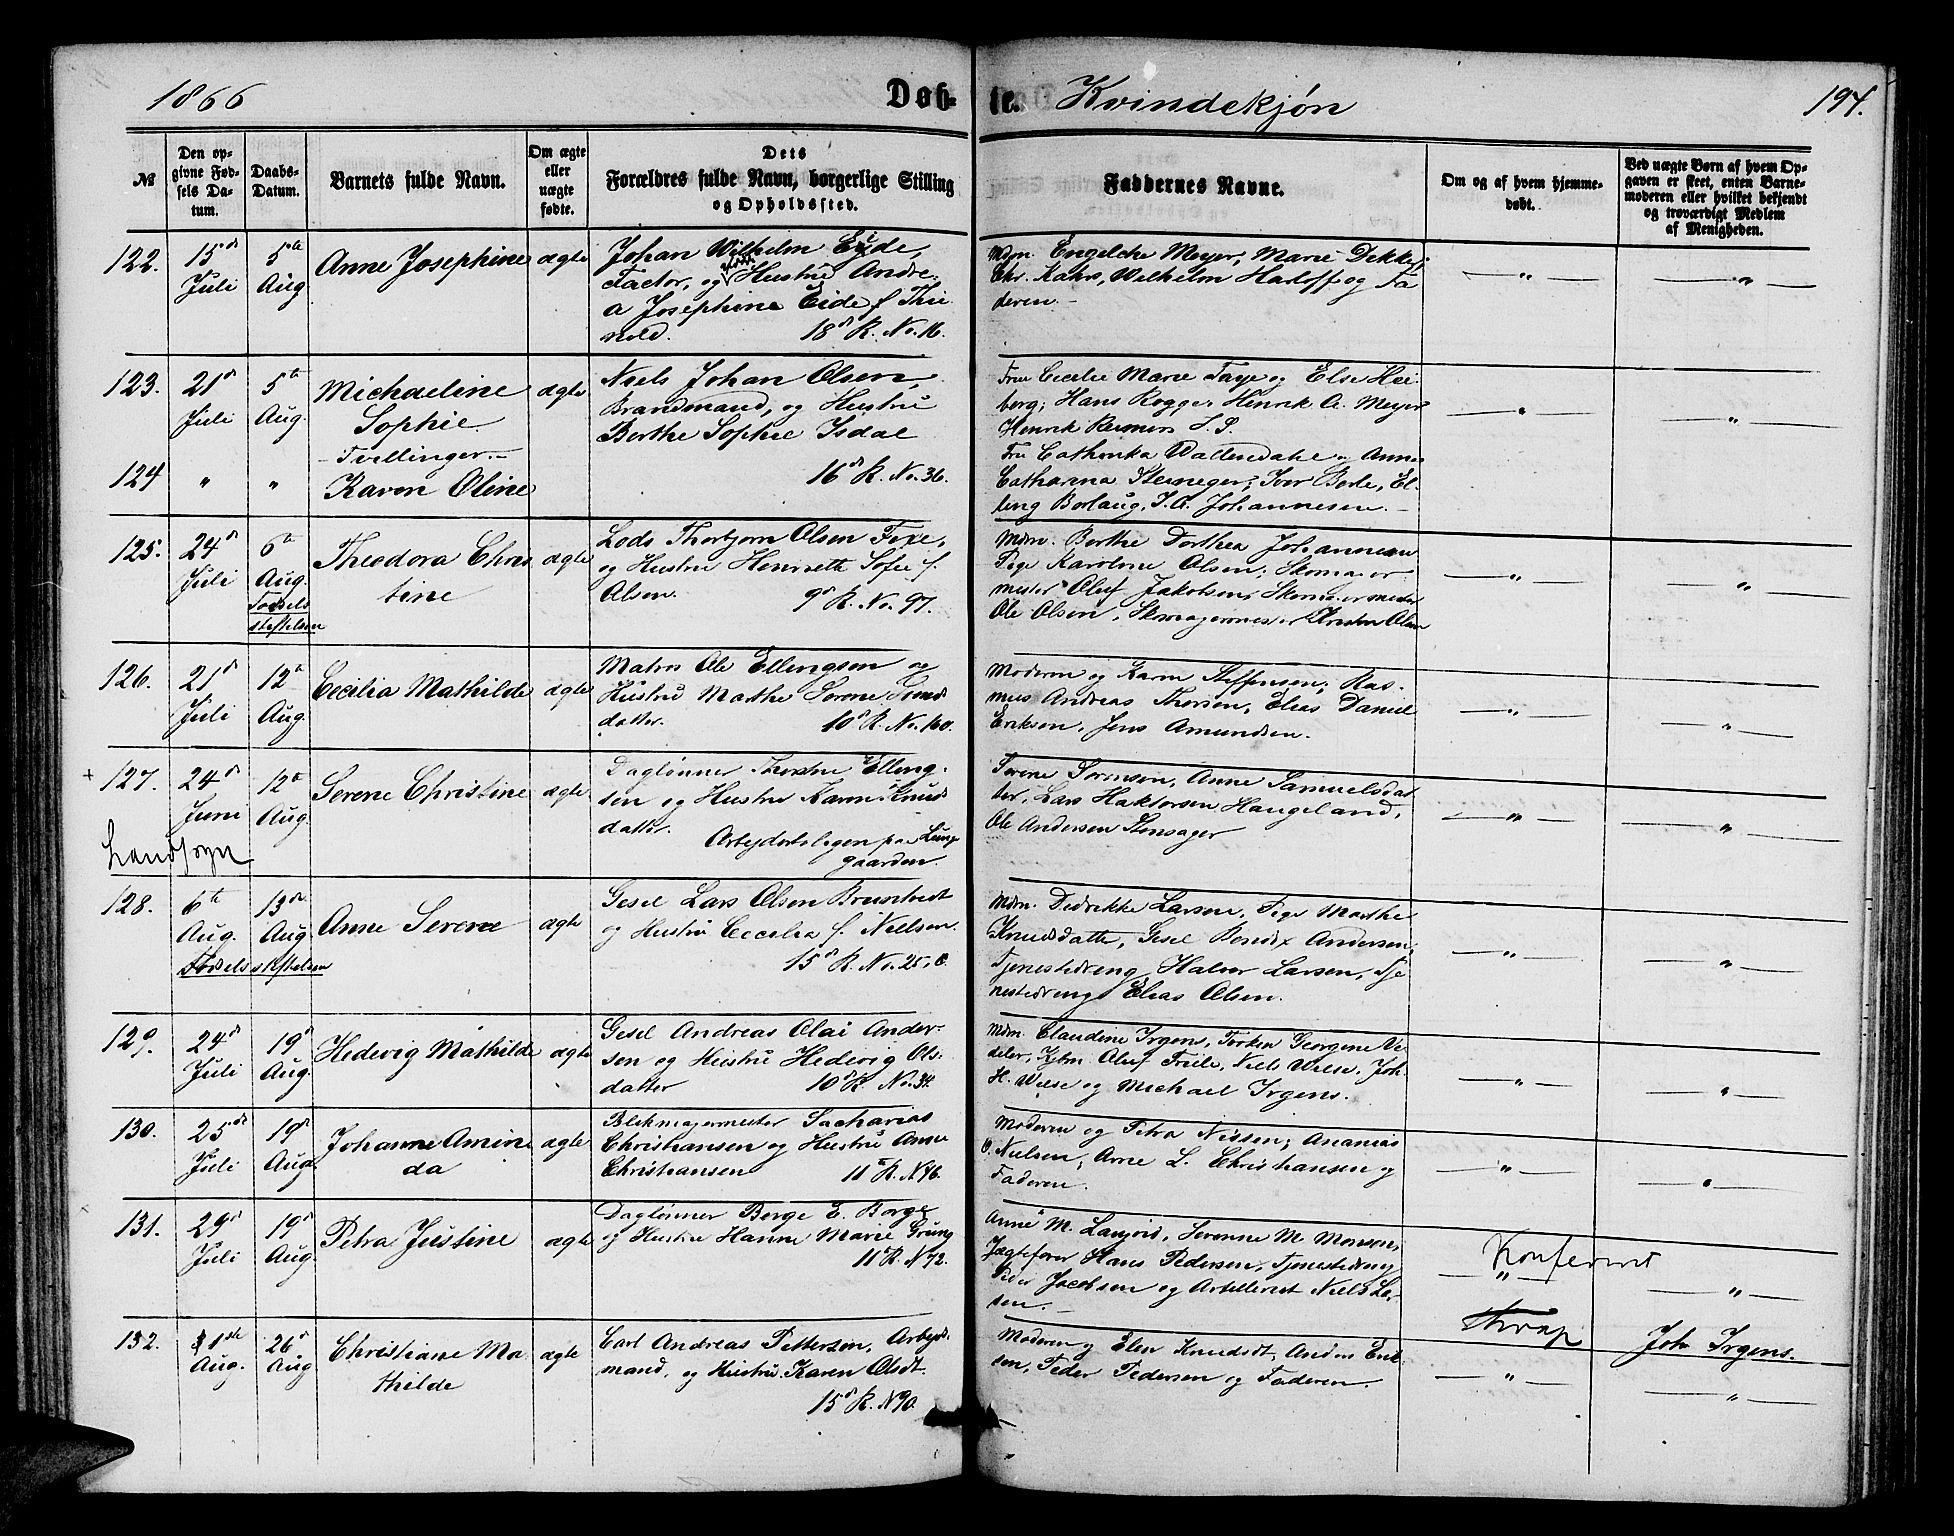 1866
Døb-
te. Kvindekjøn
194.
№
Den op-
givne Fød-
sels Da-
tum.
Daabs-
Datum.
Barnets fulde Navn.
Om ægte
eller
uægte
fødte.
Dets
Forældres fulde Navn, borgerlige Stilling
og Opholdssted.
Faddernes Navne.
Om og af hvem hjemme-
døbt.
Ved uægte Børn af hvem Op-
gaven er skeet, enten Barne-
moderen eller hvilket bekjendt
og troværdigt Medlem
af Menigheden.
122.
15de
Juli
5te
Aug
Anne Josephine
ægte
Johan Wilhelm Eide,
Factor, og Hustru Andre-
a Josephine Eide f. Thie
nold. 18de R. No. 16.
Mdm. Engelche Meyer, Marie Dekke;
Chr. Kahrs, Wilhelm Harloff og Fa
deren.
"
"
123.
21de
Juli
5te
Aug.
Michaeline
Sophie
ægte
Niels Johan Olsen,
Brandmand, og Hustru
Berthe Sophie Isdal
16de R. No. 36.
Fru Cecilie Marie Faye og Else Hei
berg; Hans Rogge, Henrik A. Meyer
Henrik Reimers
"
"
- Tvillinger. -
124
"
"
Karen Oline
Fru Cathinka Wallendahl og Anne
Catharina Steineger; Iver Berle, El-
ling Borlaug, J. A. Johannesen. -
125.
24de
Juli
6te
Aug.
Fødsels
stiftelsen
Theodora Chris
tine
ægte
Lods Thorbjørn Olsen Feie,
og Hustru Henriette Sofie f.
Olsen. 9de R. No. 97.
Mdm. Berthe Dorthea Johannesen
Pige Karoline Olsen; Skomager
mester Oluf Jakobsen, Skomagermester
Ole Olsen, Skomagermester Olsen
"
"
126.
21de
Juli
12te
Aug.
Cecilia Mathilde
ægte
Matros Ole Ellingsen og
Hustru Marthe Serene
datter. 10de R. No. 160.
Moderen og Karen Steffensen; Ras-
mus Andreas Thorsen, Elias Daniel
Eriksen, Jens Amundsen.
"
"
+
127.
24de
Juni
12te
Aug.
Landsogn
Serene Christine
ægte
Daglønner Elling-
sen og Hustru Karen Knuds
datter.
Arbejderboligen paa Lung
gaarden.
Serene Sørensen, Anne Samuelsdat-
ter, Lars Haktorsen Haugeland,
Ole Andersen Stensager
"
"
128.
6te
Aug.
13de
Aug.
Fødselsstiftelsen
Anne Serene
ægte
Gesel Lars Olsen Brunstedt
og Hustru Cecelia f. Nielsen.
15de R. No. 25, c.
Mdm. Didrikke Larsen, Pige Marthe
Knudsdatter, Gesel Bendix Andersen,
Tjenestedreng Halvor Larsen, Tje
nestedreng Elias Olsen.
"
"
129.
24de
Juli
19de
Aug.
Hedevig Mathilde
ægte
Gesel Andreas Olai Ander-
sen og Hustru Hedevig Ols-
datter 10de R. No. 34.
Mdm. Claudine Irgens, Frøken Georgene Ve
deler, Kjbm. Oluf Friele, Niels Wiese, Joh.
H. Wiese og Michael Irgens.
"
"
130.
25de
Juli
19de
Aug.
Johanne Amin
da
ægte
Blikmagermester Sacharias
Christiansen og Hustru Anne
Christiansen 11te R. N 46.
Moderen og Petra Nissen; Ananias
O. Nielsen, Arne L. Christiansen og
Faderen.
"
"
131.
29de
Juli
19de
Aug.
Petra Justine
ægte
Daglønner Børge E. Børge
og Hustru Hanne Marie Grung
11te R. N 72.
Anne M. Langøid, Serenne M. Monsen,
Jægtefører Hans Pedersen, Tjenestedreng
Peder Jacobsen og Artillerist Niels Lar-
sen. -
"
"
Konfereret
Joh. Irgens.
132.
1ste
Aug.
26de
Aug
Christiane Ma
thilde
ægte
Carl Andreas Pettersen, Arbejds
mand, og Hustru Karen Olsdt.
15de R. N 90.
Moderen og Elen Knudsdt; Anders Erik-
sen, Peder Pedersen og Faderen.
"
"